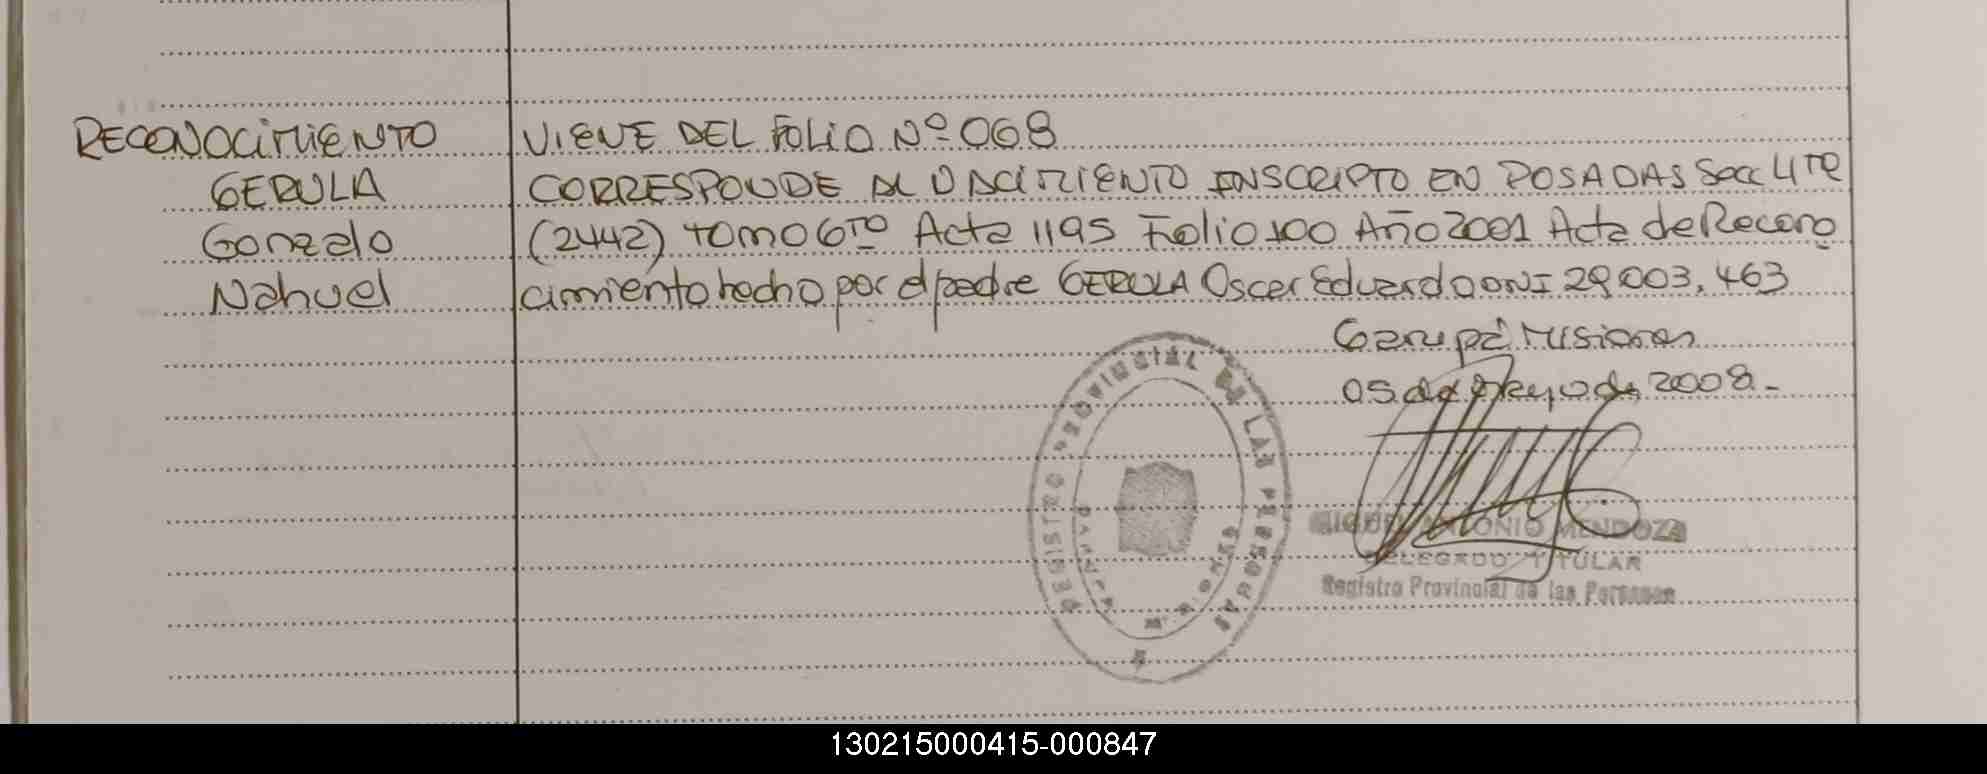 RECONOCIMIENTO
GERULA
Gonzalo
Nahuel
VIENE DEL FOLIO Nº 068
CORRESPONDE AL NACIMIENTO INSCRIPTO EN POSADAS Secc 4TA
(2442) TOMO 6TO Acta 1195 Folio 100 Año 2001 Acta de Recono
cimiento hecho por el padre GERULA Oscar Eduardo DNI 29.003.463
Garupá Misiones
05 de Mayo de 2008.-
REGISTRO PROVINCIAL DE LAS PERSONAS
GARUPA
MIGUEL ANTONIO MENDOZA
DELEGADO TITULAR
Registro Provincial de las Personas
130215000415-000847